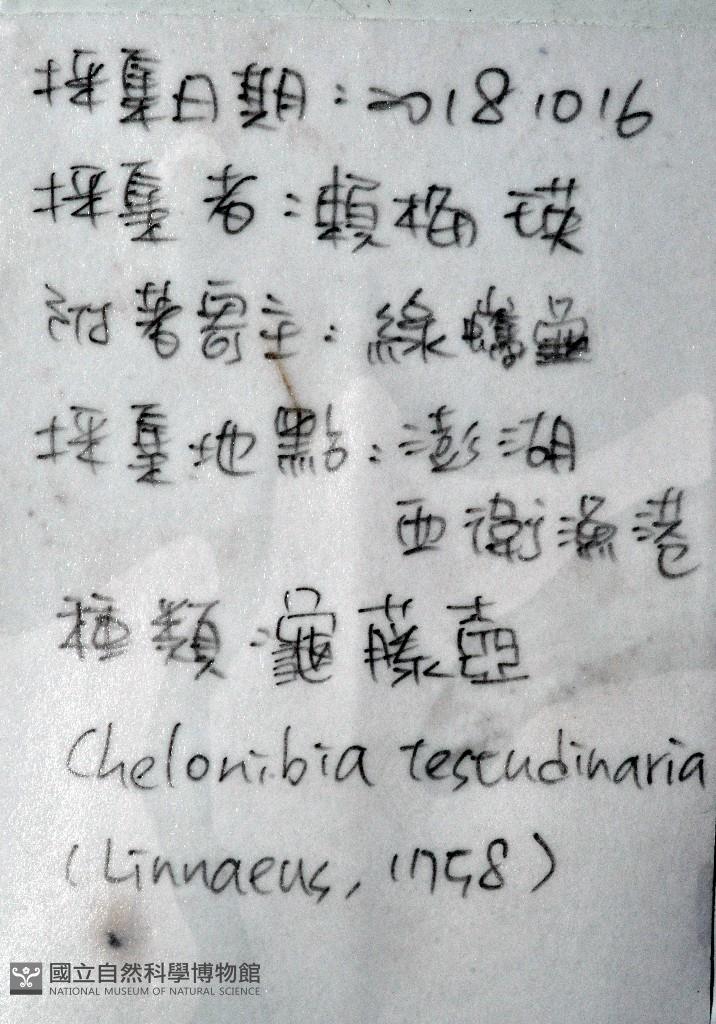 採集日期：20181016
採集者：賴梅瑛
附著宿主：綠蠵龜
採集地點：澎湖
西衛漁港
種類：龜藤壺
Chelonibia testudinaria
(Linnaeus, 1758)
國立自然科學博物館
NATIONAL MUSEUM OF NATURAL SCIENCE